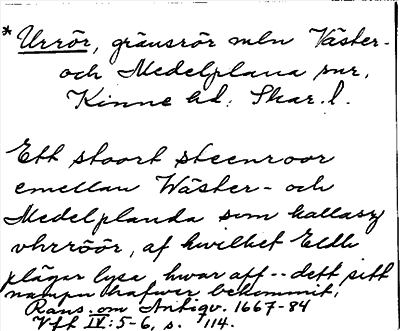 * Urrör, gränsrör mln Väster-
och Medelplana snr,
Kinne hd; Skar. l.
Ett stoort steenroor
emellan Wäster- och
Medelplanda som kallasz
vhrröör, af hwilket Eldh
plägar lysa, hwar aff -- dett sitt
nampn hafwer bekommit,
Rans. om Antiqv. 1667-84
Vft IV: 5-6, s. 114.